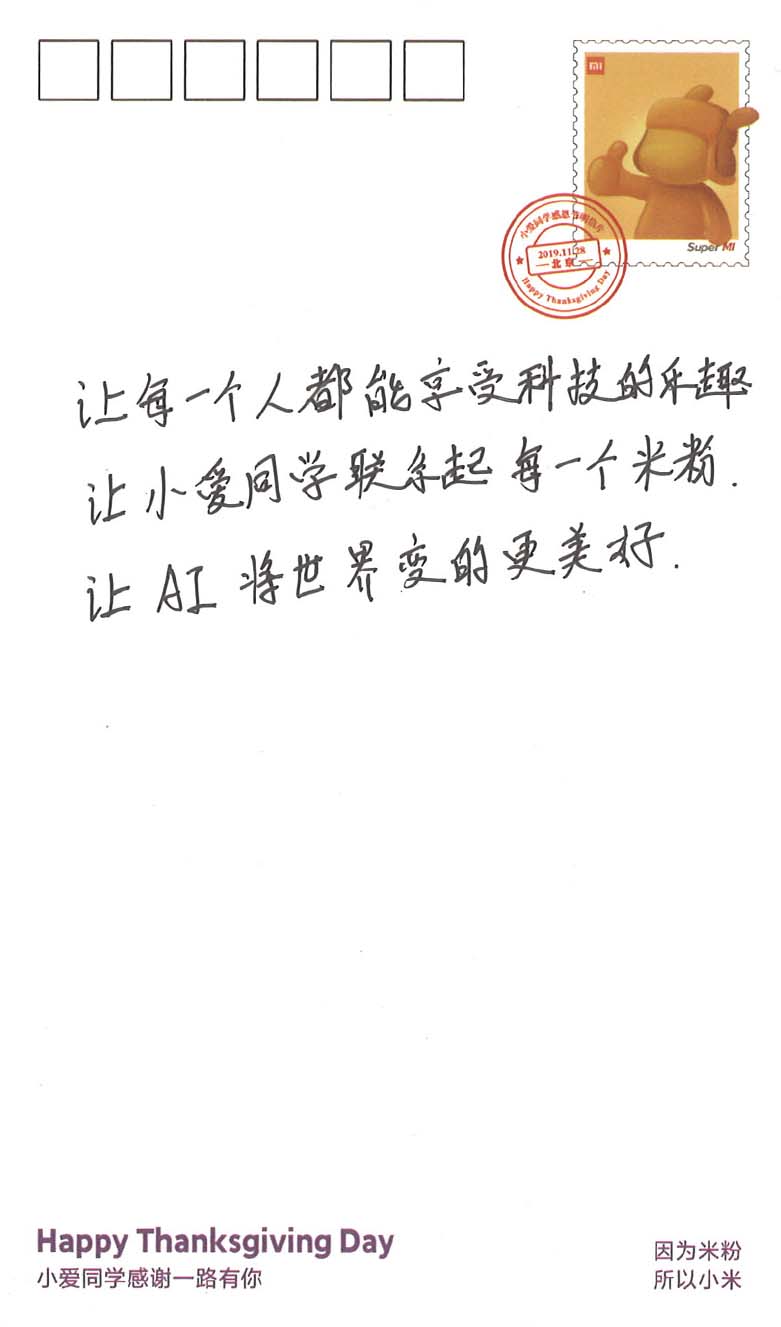 MI
Super MI
小爱同学感恩节明信片
2019.11.28
北京
Happy Thanksgiving Day
让每一个人都能享受科技的乐趣
让小爱同学联系起每一个米粉.
让AI将世界变的更美好.
Happy Thanksgiving Day
小爱同学感谢一路有你
因为米粉
所以小米